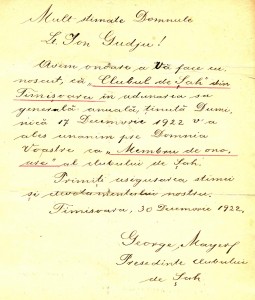 Mult stimate Domnule
Le Ion Gudju!
Avem onoare a Vă face cu-
noscut, că "Clubul de Șah" din
Timisoara in adunarea sa
generală anuală, ținută Dumi-
nică 17 Decemvrie 1922 v-a
ales unanim pre Domnia
Voastre ca "Membru de ono-
are" al clubului de Șah.
Primiți asigurarea stimei
și devotamentului nostru.
Timisoara, 30 Decemvrie 1922.
George Mayer
Presedinte clubului
de Șah